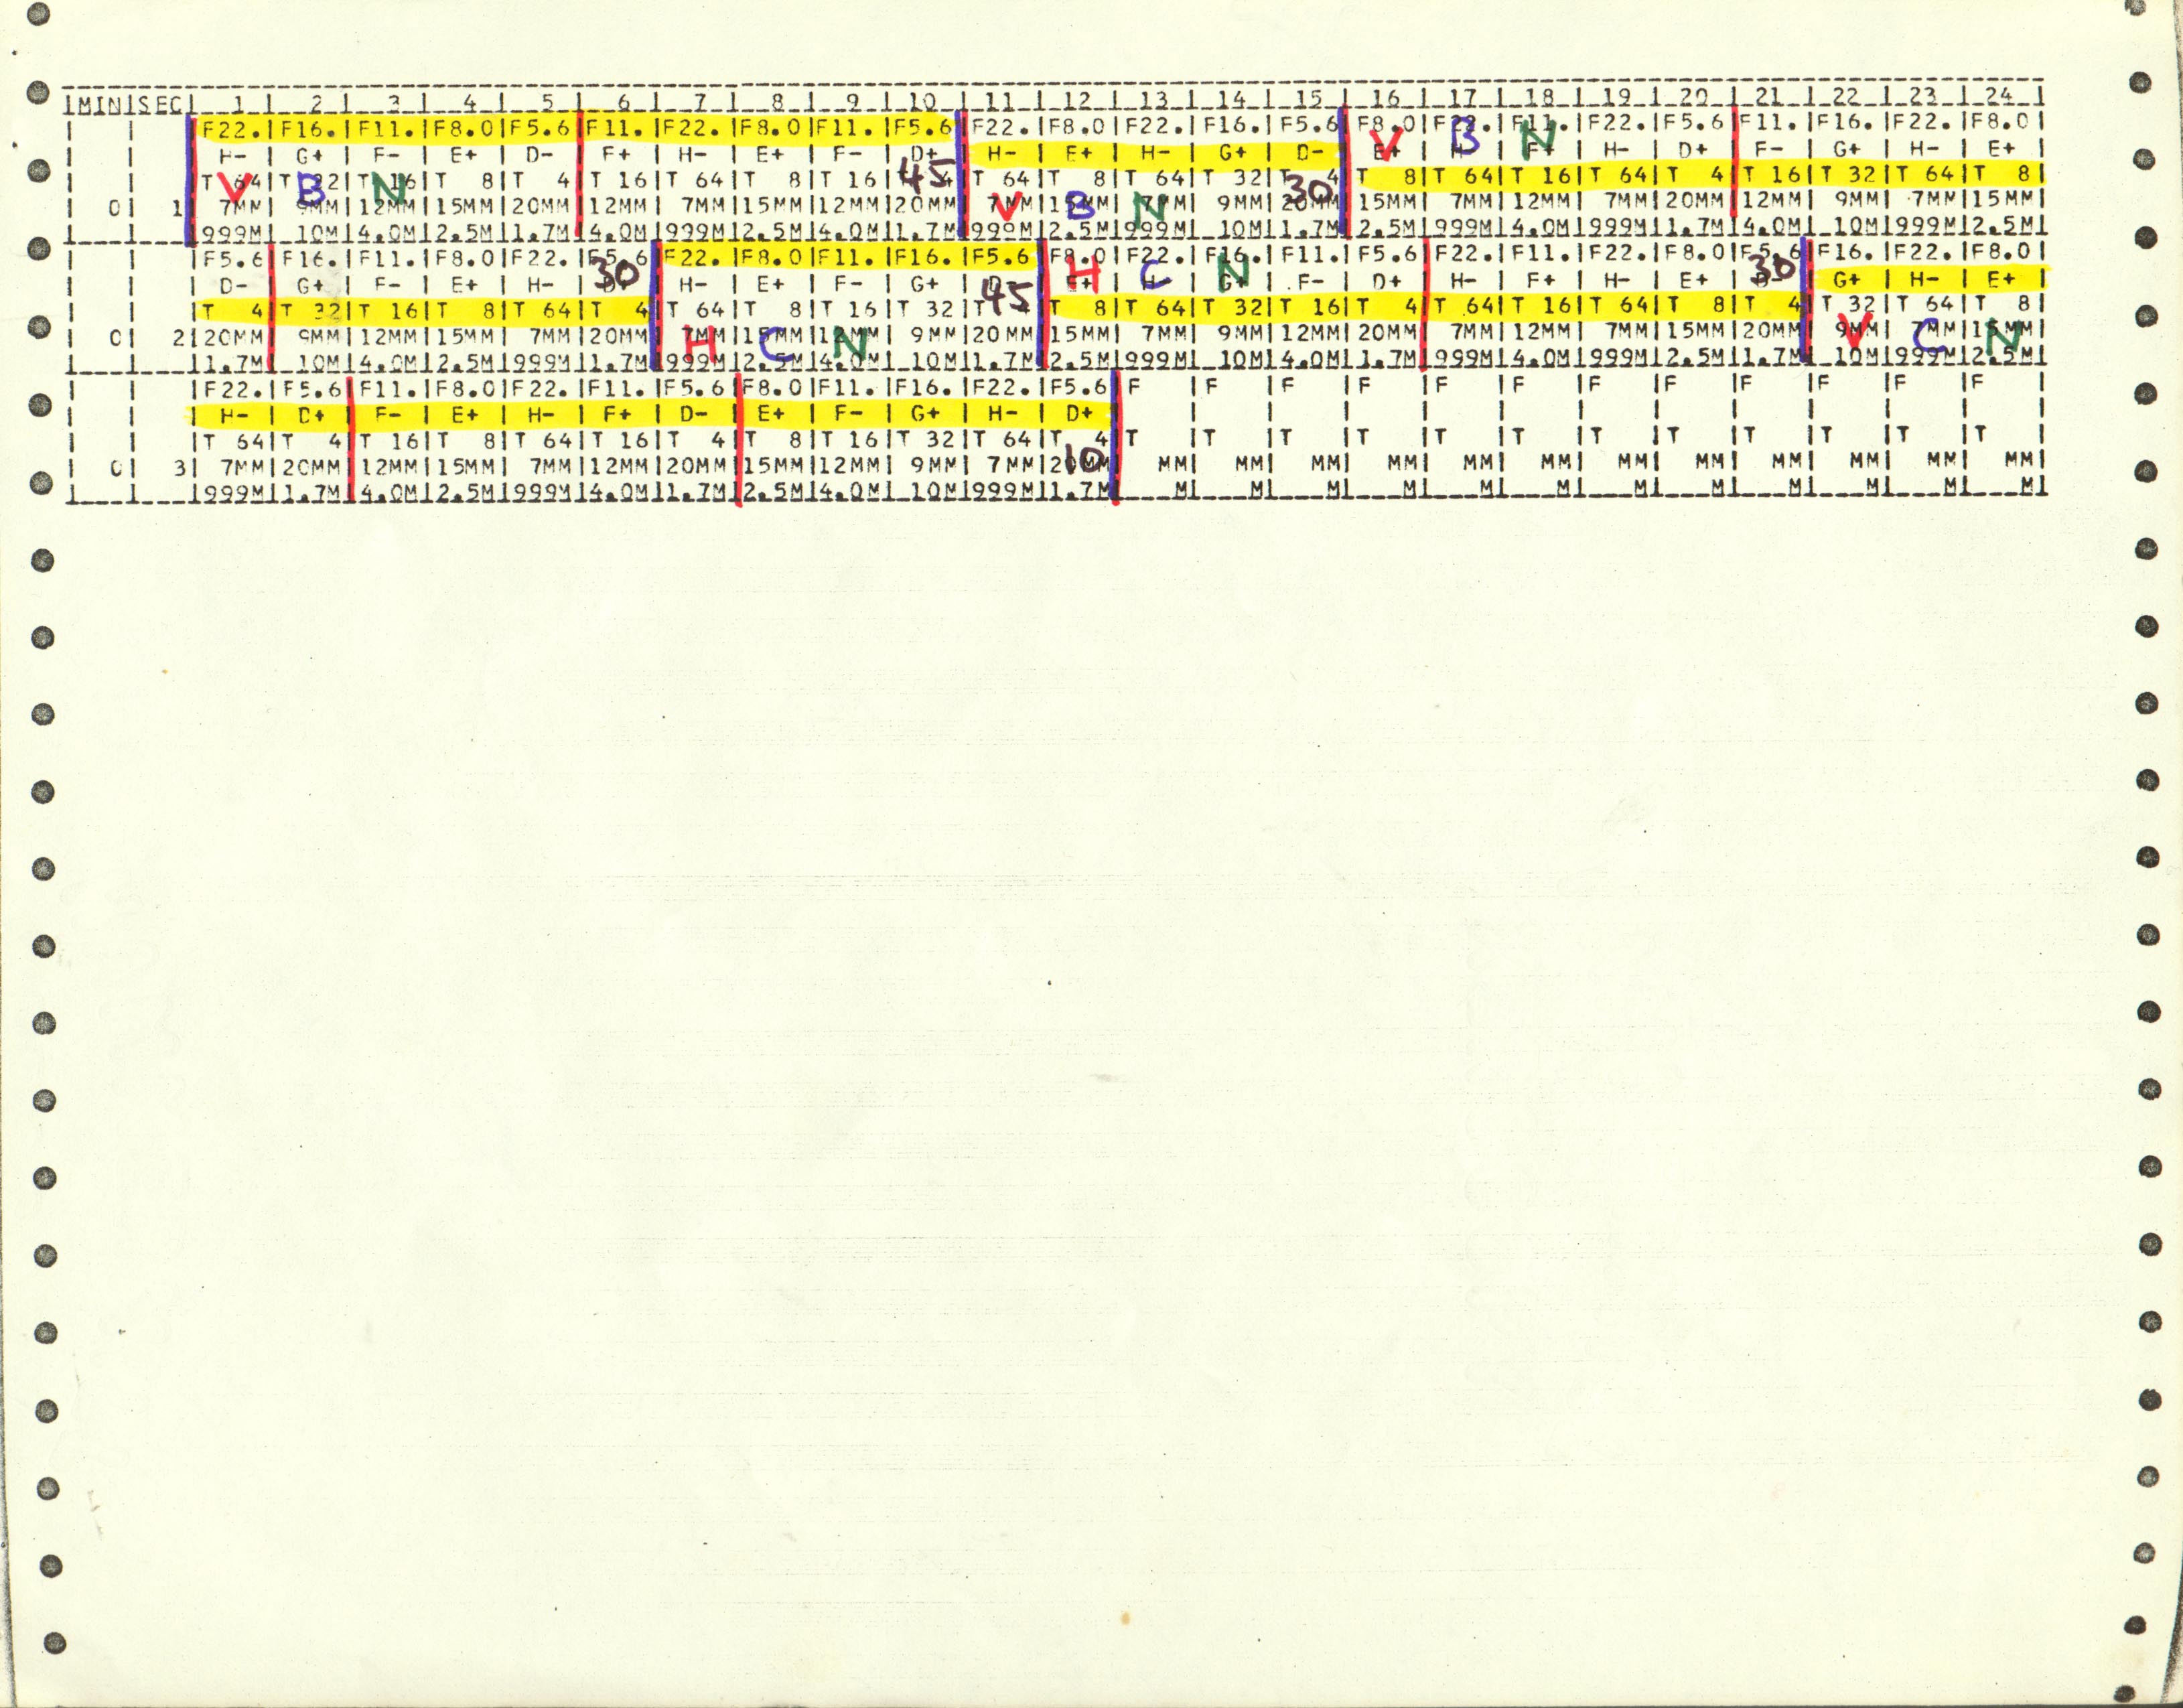 |MIN|SEC|__1_|__2_|__3_|__4_|__5_|__6_|__7_|__8_|__9_|_10_|_11_|_12_|_13_|_14_|_15_|_16_|_17_|_18_|_19_|_20_|_21_|_22_|_23_|_24_|
| | |F22.|F16.|F11.|F8.0|F5.6|F11.|F22.|F8.0|F11.|F5.6|F22.|F8.0|F22.|F16.|F5.6|F8.0|F22.|F11.|F22.|F5.6|F11.|F16.|F22.|F8.0|
| | | H- | G+ | F- | E+ | D- | F+ | H- | E+ | F- | D+ | H- | E+ | H- | G+ | D- | E+ | H- | F+ | H- | D+ | F- | G+ | H- | E+ |
V B N 45 V B N 30 V B N
| | |T 64|T 32|T 16|T 8|T 4|T 16|T 64|T 8|T 16|T 4|T 64|T 8|T 64|T 32|T 4|T 8|T 64|T 16|T 64|T 4|T 16|T 32|T 64|T 8|
| 0| 1| 7MM| 9MM|12MM|15MM|20MM|12MM| 7MM|15MM|12MM|20MM| 7MM|15MM| 7MM| 9MM|20MM|15MM| 7MM|12MM| 7MM|20MM|12MM| 9MM| 7MM|15MM|
|___|___|999M|_10M|4.0M|2.5M|1.7M|4.0M|999M|2.5M|4.0M|1.7M|999M|2.5M|999M|_10M|1.7M|2.5M|999M|4.0M|999M|1.7M|4.0M|_10M|999M|2.5M|
| | |F5.6|F16.|F11.|F8.0|F22.|F5.6|F22.|F8.0|F11.|F16.|F5.6|F8.0|F22.|F16.|F11.|F5.6|F22.|F11.|F22.|F8.0|F5.6|F16.|F22.|F8.0|
| | | D- | G+ | F- | E+ | H- | D+ | H- | E+ | F- | G+ | D- | E+ | H- | G+ | F- | D+ | H- | F+ | H- | E+ | D- | G+ | H- | E+ |
30 H C N 45 H C N 30 V C N
| | |T 4|T 32|T 16|T 8|T 64|T 4|T 64|T 8|T 16|T 32|T 4|T 8|T 64|T 32|T 16|T 4|T 64|T 16|T 64|T 8|T 4|T 32|T 64|T 8|
| 0| 2|20MM| 9MM|12MM|15MM| 7MM|20MM| 7MM|15MM|12MM| 9MM|20MM|15MM| 7MM| 9MM|12MM|20MM| 7MM|12MM| 7MM|15MM|20MM| 9MM| 7MM|15MM|
|___|___|1.7M|_10M|4.0M|2.5M|999M|1.7M|999M|2.5M|4.0M|_10M|1.7M|2.5M|999M|_10M|4.0M|1.7M|999M|4.0M|999M|2.5M|1.7M|_10M|999M|2.5M|
| | |F22.|F5.6|F11.|F8.0|F22.|F11.|F5.6|F8.0|F11.|F16.|F22.|F5.6|F |F |F |F |F |F |F |F |F |F |F |F |
| | | H- | D+ | F- | E+ | H- | F+ | D- | E+ | F- | G+ | H- | D+ | | | | | | | | | | | | |
| | |T 64|T 4|T 16|T 8|T 64|T 16|T 4|T 8|T 16|T 32|T 64|T 4|T |T |T |T |T |T |T |T |T |T |T |T |
10
| 0| 3| 7MM|20MM|12MM|15MM| 7MM|12MM|20MM|15MM|12MM| 9MM| 7MM|20MM| MM| MM| MM| MM| MM| MM| MM| MM| MM| MM| MM| MM|
|___|___|999M|1.7M|4.0M|2.5M|999M|4.0M|1.7M|2.5M|4.0M|_10M|999M|1.7M|___M|___M|___M|___M|___M|___M|___M|___M|___M|___M|___M|___M|